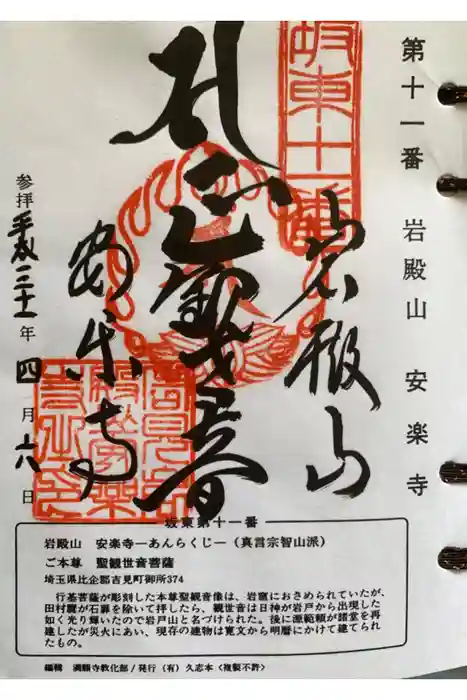 第十一番 岩殿山 安楽寺
坂東十一番
岩殿山
聖観世音
安楽寺
参拝平成三十一年四月六日
坂東第十一番
岩殿山 安楽寺―あんらくじ―(真言宗智山派)
ご本尊 聖観世音菩薩
埼玉県比企郡吉見町御所374
行基菩薩が彫刻した本尊聖観音像は、岩窟におさめられていたが、
田村麿が石扉を除いて拝したら、観世音は日神が岩戸から出現した
如く光り輝いたので岩戸山と名づけられた。後に源範頼が諸堂を再
建したが災火にあい、現存の建物は寛文から明暦にかけて建てられ
たもの。
編輯 満願寺教化部/発行(有)久志本<複製不許>